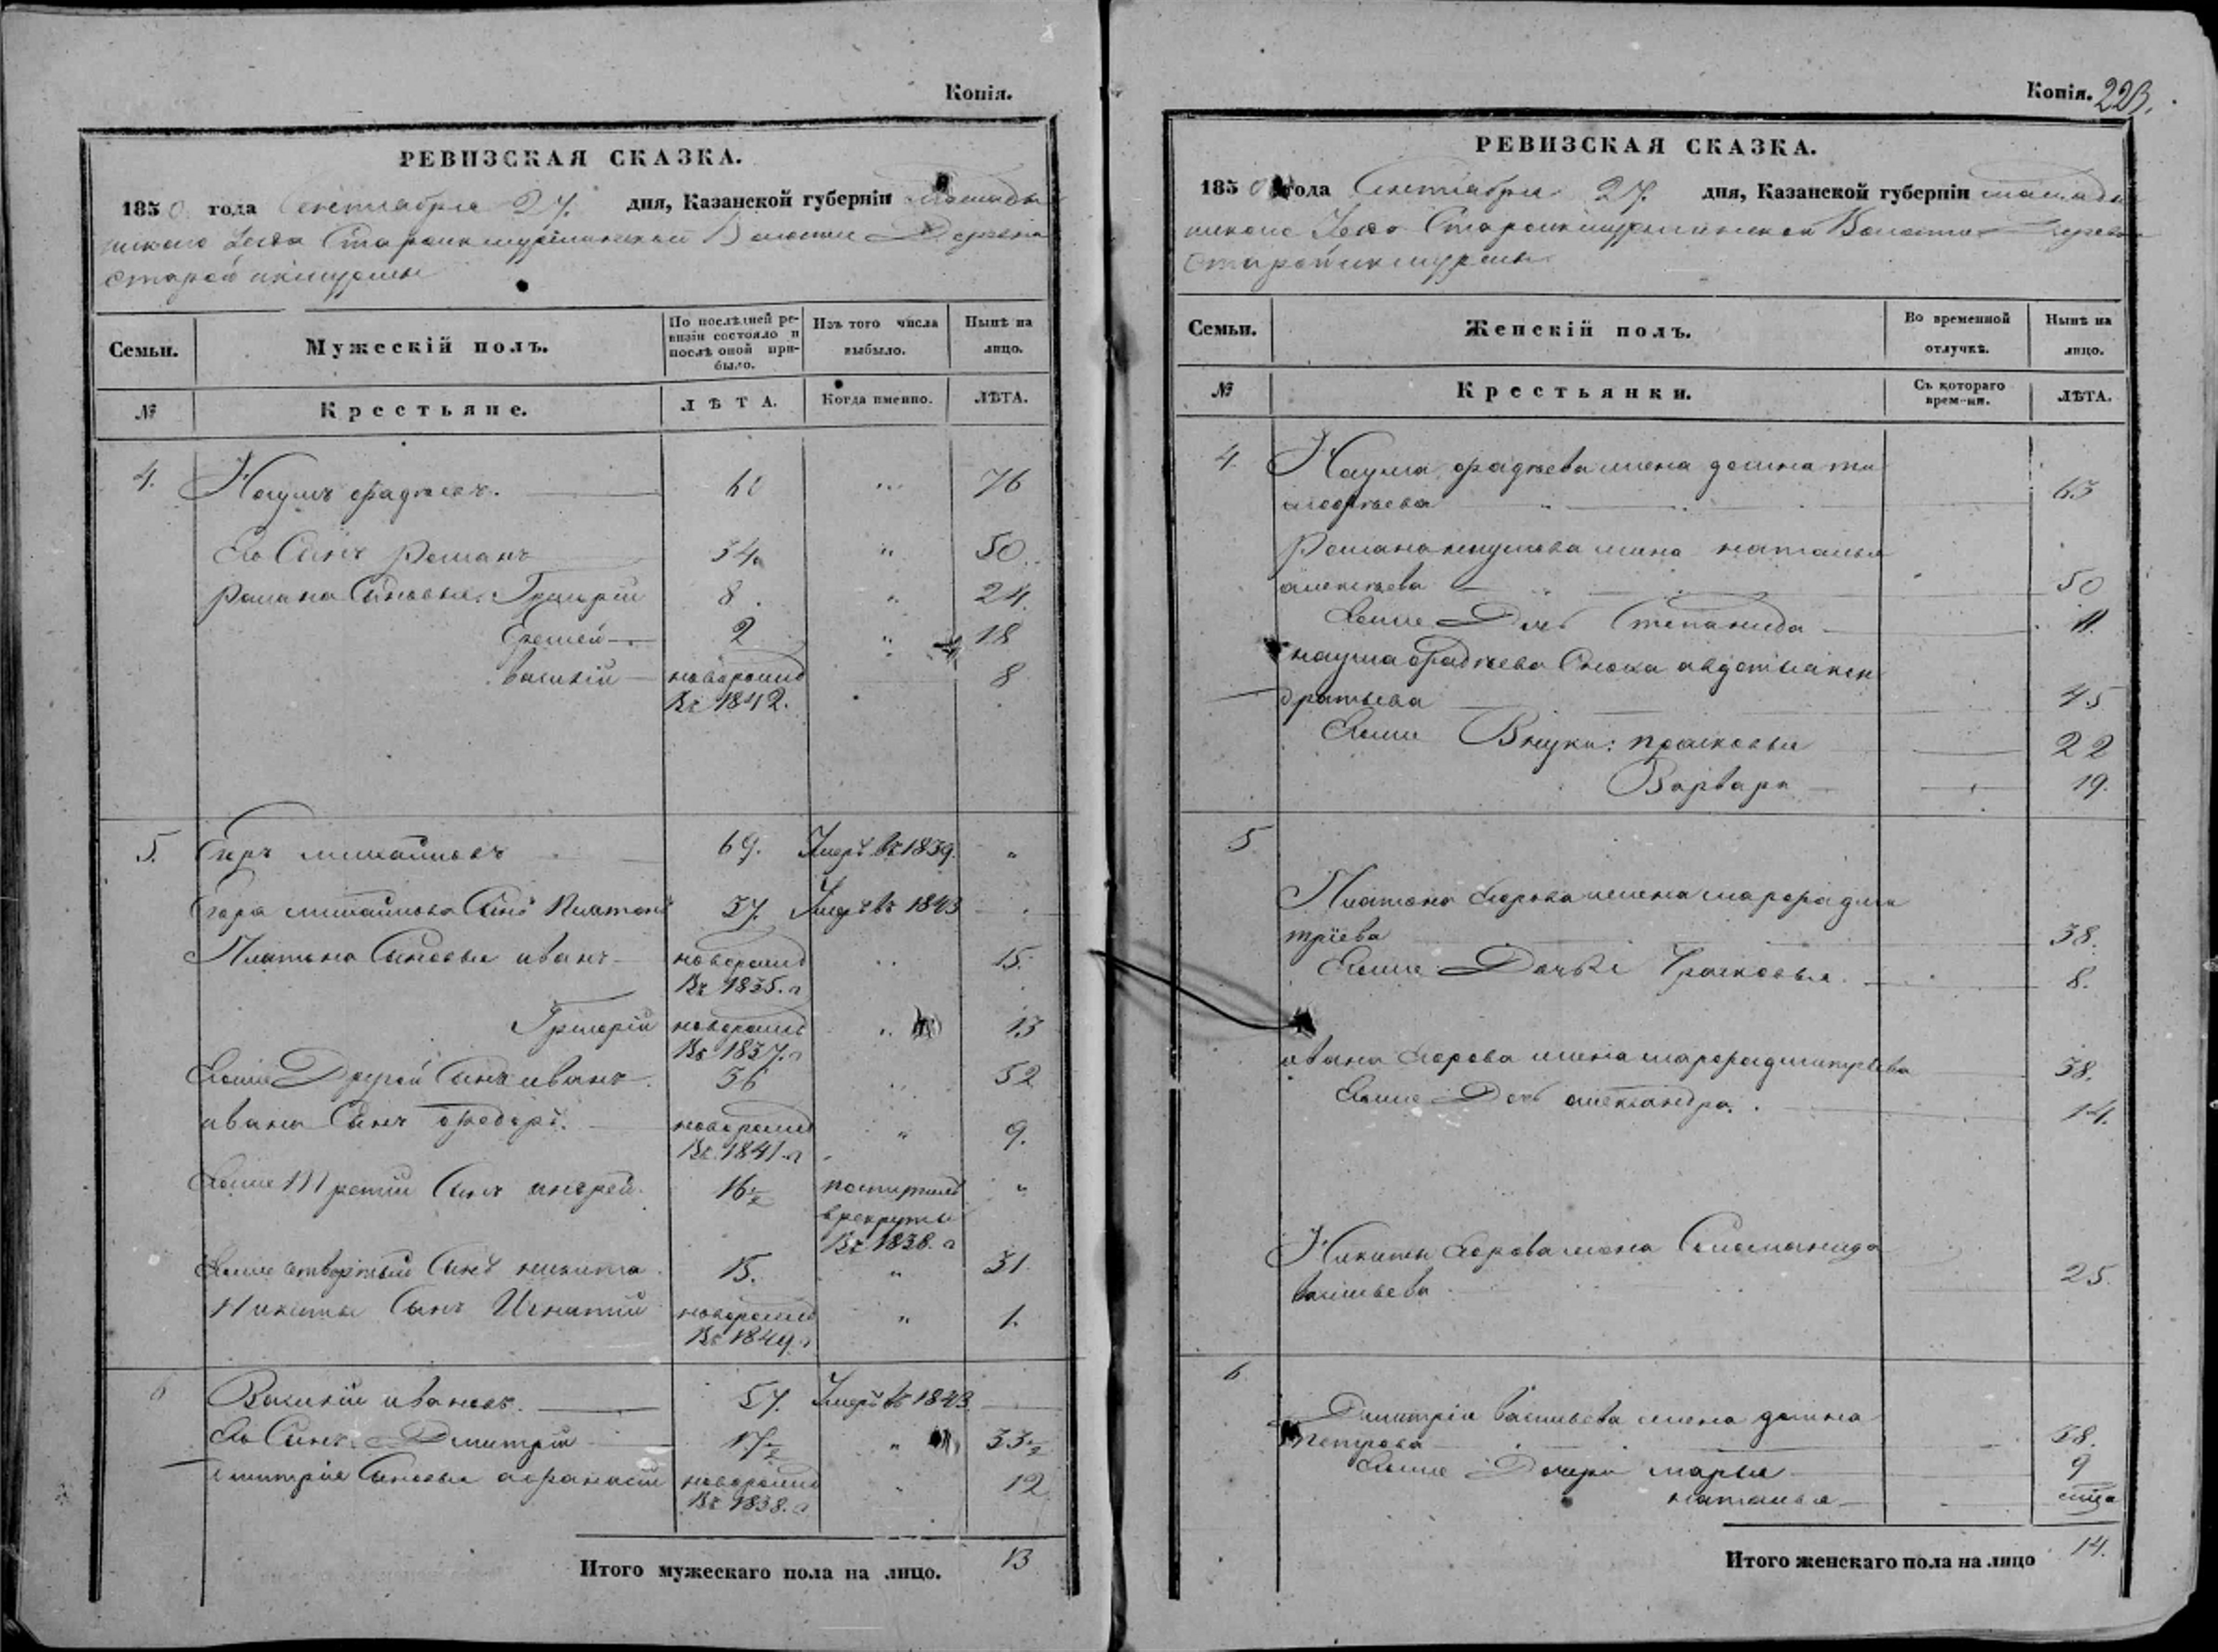 Копія.
РЕВИЗСКАЯ СКАЗКА.
1850 года Сентября 27. дня, Казанской губерніи Мамады
шскаго Уезда Староикшурминской Волости Деревни
Старой икшурмы
Семьи.
Мужескій полъ.
По послѣдней ре-
визіи состояло и
послѣ оной при-
было.
Изъ того числа
выбыло.
Нынѣ на
лицо.
№
Крестьяне.
ЛѢТА.
Когда именно.
ЛѢТА.
4. Наумъ фадѣевъ. 60 " 76
Его Сынъ Романъ 34 " 50.
Романа Сыновья. Григорій 8. " 24.
Еремей 2 " 18
Василій новорожд 8
Въ 1842.
5. Егоръ михайловъ 69. Умеръ въ 1839. "
Егора михайлова Сынъ Платонъ 37. Умеръ въ 1843
Платона Сыновья иванъ новорожд " 15.
Въ 1835. г
Григорій новорожд " 13
Въ 1837. г
Егоже Другой Сынъ иванъ 36 " 52
ивана Сынъ федоръ. новорожд " 9.
Въ 1841. г
Егоже Третій Сынъ андрей. 16 1/2 поступилъ "
в рекруты
Въ 1838. г
Егоже четвертый Сынъ никита 15. " 31.
Никиты Сынъ Игнатій новорожд " 1.
Въ 1849. г
6 Василій ивановъ. 57. Умеръ въ 1843
Его Сынъ Дмитрій 17 1/2 " 33 1/2
Дмитрія Сыновья афанасій новорожд " 12
Въ 1838. г
Итого мужескаго пола на лицо. 13
Копія. 223.
РЕВИЗСКАЯ СКАЗКА.
1850 года Сентября 27. дня, Казанской губерніи мамады
шскаго Уезда Староикшурминской Волости Деревни
Старой икшурмы
Семьи.
Женскій полъ.
Во временной
отлучкѣ.
Нынѣ на
лицо.
№
Крестьянки.
Съ котораго
времени.
ЛѢТА.
4. Наума фадѣева жена домна ти
мофѣева 63
Романа наумова жена наталья
алексѣева 50
Егоже Дочь Степанида 11.
наума фадѣева Сноха авдотья кон
дратьева 45
Егоже Внуки: прасковья 22
Варвара 19.
5
Платона Егорова жена марфа дми
тріева 38.
Егоже Дочь Прасковья. 8.
ивана Егорова жена марфа 38.
Егоже Дочь александра. 14.
Никиты Егорова жена Соломанида
васильева 25.
6
Дмитрія васильева жена домна
петрова 38.
Егоже Дочери марья 9
наталья
Итого женскаго пола на лицо 14.